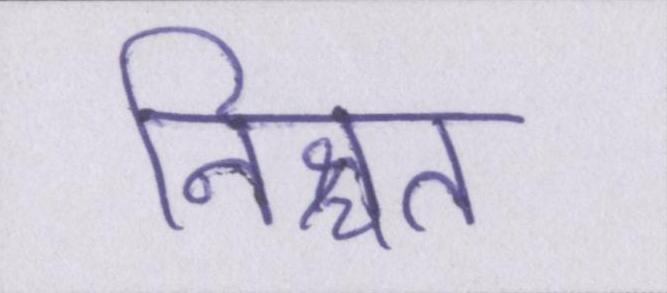 निश्चत